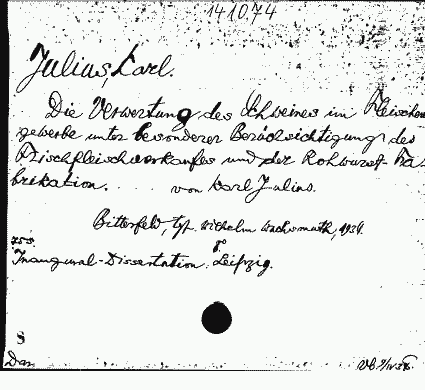 141074
Julius, Karl.
Die Verwertung des Schweines im Fleischer-
gewerbe unter besonderer Berücksichtigung des
Frischfleischverkaufes und der Rohwurst-Fa-
brikation. von Karl Julius.
Bitterfeld, typ. Wilhelm Wachsmuth, 1934.
8°
Inaugural-Dissertation. Leipzig.
S